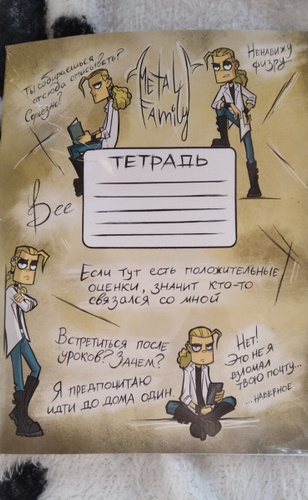 Ты собираешься
отсюда списывать?
Серьёзно?
METAL
Family
Ненавижу
физру
ТЕТРАДЬ
Все
Если тут есть положительные
оценки, значит кто-то
связался со мной
Встретиться после
уроков? Зачем?
Я предпочитаю
идти до дома один.
Нет!
Это не я
взломал
твою почту...
...наверное